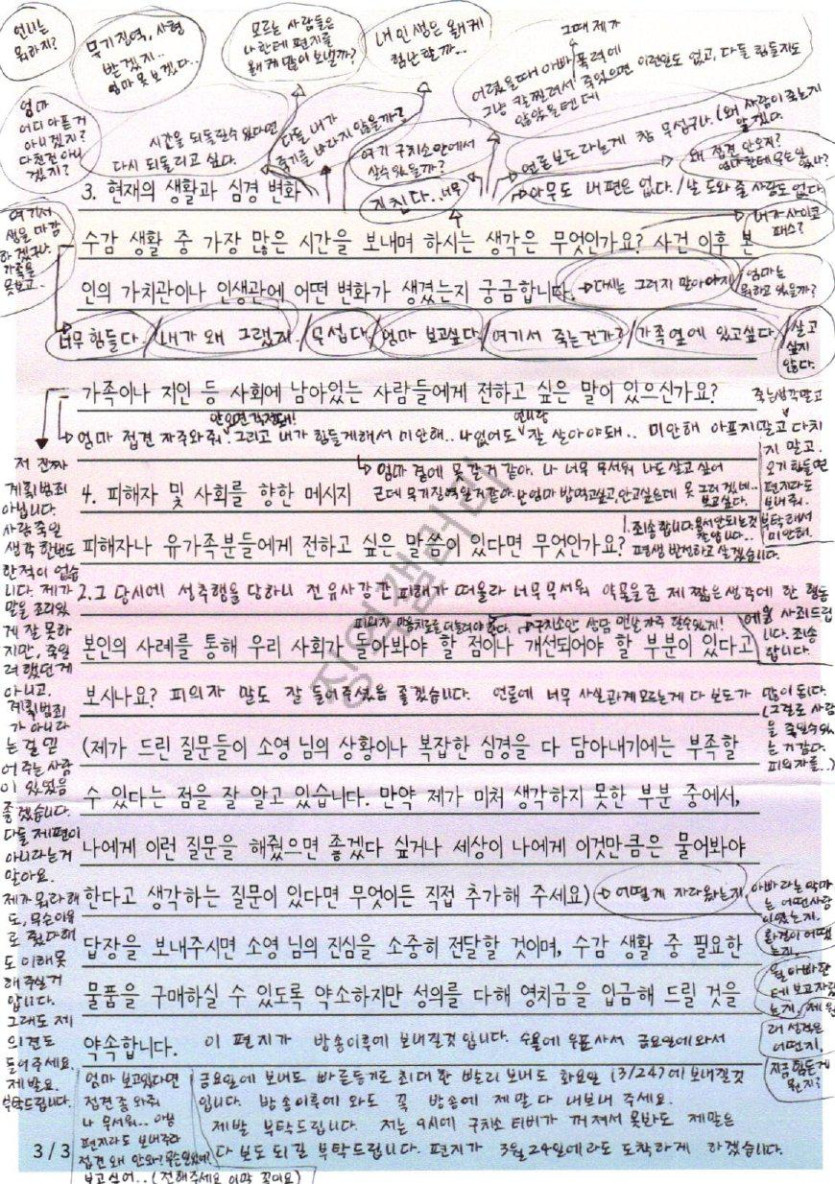 언니는
뭐하지?
무기징역, 사형
받겠지..
엄마 못보겠다..
모르는 사람들은
나한테 편지를
왜케 많이 보낼까?
내 인생은 왜케
험난할까..
그때 제가
어렸을때 아빠 폭력에
그냥 칼찔려서 죽었으면 이런일도 없고, 다들 힘들지도
않았을텐데
엄마
어디 아픈거
아니겠지?
다친건 아니
겠지?
시간을 되돌릴수 있다면
다시 되돌리고 싶다.
다들 내가
죽기를 바라지 않을까?
여기 구치소안에서
살수 있을까?
언론보도라는게 참 무섭구나. (왜 사람이 죽는지
알겠다.
왜 접견 안오지?
엄마한테 무슨일 있나?
3. 현재의 생활과 심경 변화
지친다.. 너무
아무도 내편은 없다. / 날 도와줄 사람도 없다
여기서
생을 마감
하겠구나.
가족을
못보고..
내가 사이코
패스?
수감 생활 중 가장 많은 시간을 보내며 하시는 생각은 무엇인가요? 사건 이후 본
인의 가치관이나 인생관에 어떤 변화가 생겼는지 궁금합니다.
다시는 그러지 말아야지
엄마는
뭐하고 있을까?
너무 힘들다 / 내가 왜 그랬지. / 무섭다 / 엄마 보고싶다 / 여기서 죽는건가? / 가족옆에 있고싶다 / 살고
싶지
않다.
가족이나 지인 등 사회에 남아있는 사람들에게 전하고 싶은 말이 있으신가요?
안오면 걱정돼!
언니랑
죽는생각말고
엄마 접견 자주와줘 그리고 내가 힘들게해서 미안해.. 나없어도 잘 살아야돼.. 미안해 아프지말고 다치
지 말고.
오기 힘들면
편지라도
보내줘.
부탁해서
미안해.
엄마 곁에 못갈거 같아. 나 너무 무서워 나도 살고 싶어
근데 무기징역일거같아. 난 엄마 밥먹고싶고, 안고싶은데 못 그러겠네..
보고싶다.
4. 피해자 및 사회를 향한 메시지
1. 죄송합니다.
평생 반성하고 살겠습니다.
피해자나 유가족분들에게 전하고 싶은 말씀이 있다면 무엇인가요?
2. 그 당시에 성추행을 당하니 전 유사강간 피해가 떠올라 너무 무서워 약물을준 제 짧은생각에 한 행동
에을 사죄드립
니다. 죄송
합니다.
피의자 마음치료를 더 늘려야 한다.
구치소안 상담 면담 자주 할수있게!
본인의 사례를 통해 우리 사회가 돌아봐야 할 점이나 개선되어야 할 부분이 있다고
보시나요? 피의자 말도 잘 들어주셨음 좋겠습니다. 언론에 너무 사실관계 모르는게 다 보도가 많이 된다.
(그걸로 사람
을 죽일수있
는거 같다.
피의자를..)
(제가 드린 질문들이 소영 님의 상황이나 복잡한 심경을 다 담아내기에는 부족할
수 있다는 점을 잘 알고 있습니다. 만약 제가 미처 생각하지 못한 부분 중에서,
나에게 이런 질문을 해줬으면 좋겠다 싶거나 세상이 나에게 이것만큼은 물어봐야
한다고 생각하는 질문이 있다면 무엇이든 직접 추가해 주세요)
어떻게 자라왔는지, 아빠라는 악마
는 어떤사람
이었는지.
환경이 어땠
는지.
뭘 아빠한
테 보고자랐
는지, 제 원
래 성격은
어떤지,
지금 힘든게
뭔지?
답장을 보내주시면 소영 님의 진심을 소중히 전달할 것이며, 수감 생활 중 필요한
물품을 구매하실 수 있도록 약소하지만 성의를 다해 영치금을 입금해 드릴 것을
약속합니다. 이 편지가 방송이후에 보내질것 입니다. 수욜에 우표사서 금요일에와서
금요일에 보내도 빠른등기로 최대한 빨리 보내도 화요일 (3/24)에 보내질것
입니다. 방송이후에 와도 꼭 방송에 제말 다 내보내 주세요.
제발 부탁드립니다. 저는 9시에 구치소 티비가 꺼져서 못봐도 제말은
다 보도 되길 부탁드립니다. 편지가 3월24일에라도 도착하게 하겠습니다.
저 진짜
계획범죄
아닙니다.
사람 죽일
생각 한번도
한적이 없습
니다. 제가
말을 조리있
게 잘 못하
지만, 죽일
려했던게
아니고.
계획범죄
가 아니라
는걸 믿
어주는 사람
이 있었음
좋겠습니다.
다들 제편이
아니라는거
알아요.
제가 뭐라해
도, 무슨이유
로 했다해
도 이해못
해주실거
압니다.
그래도 제
의견도
들어주세요.
제발요.
부탁드립니다.
엄마 보고있다면
접견좀 와줘
나 무서워..
편지라도 보내주라
접견 왜 안와? 무슨일있어?
보고싶어.. (전해주세요 이말 꼭이요)
3 / 3
징역갤러리